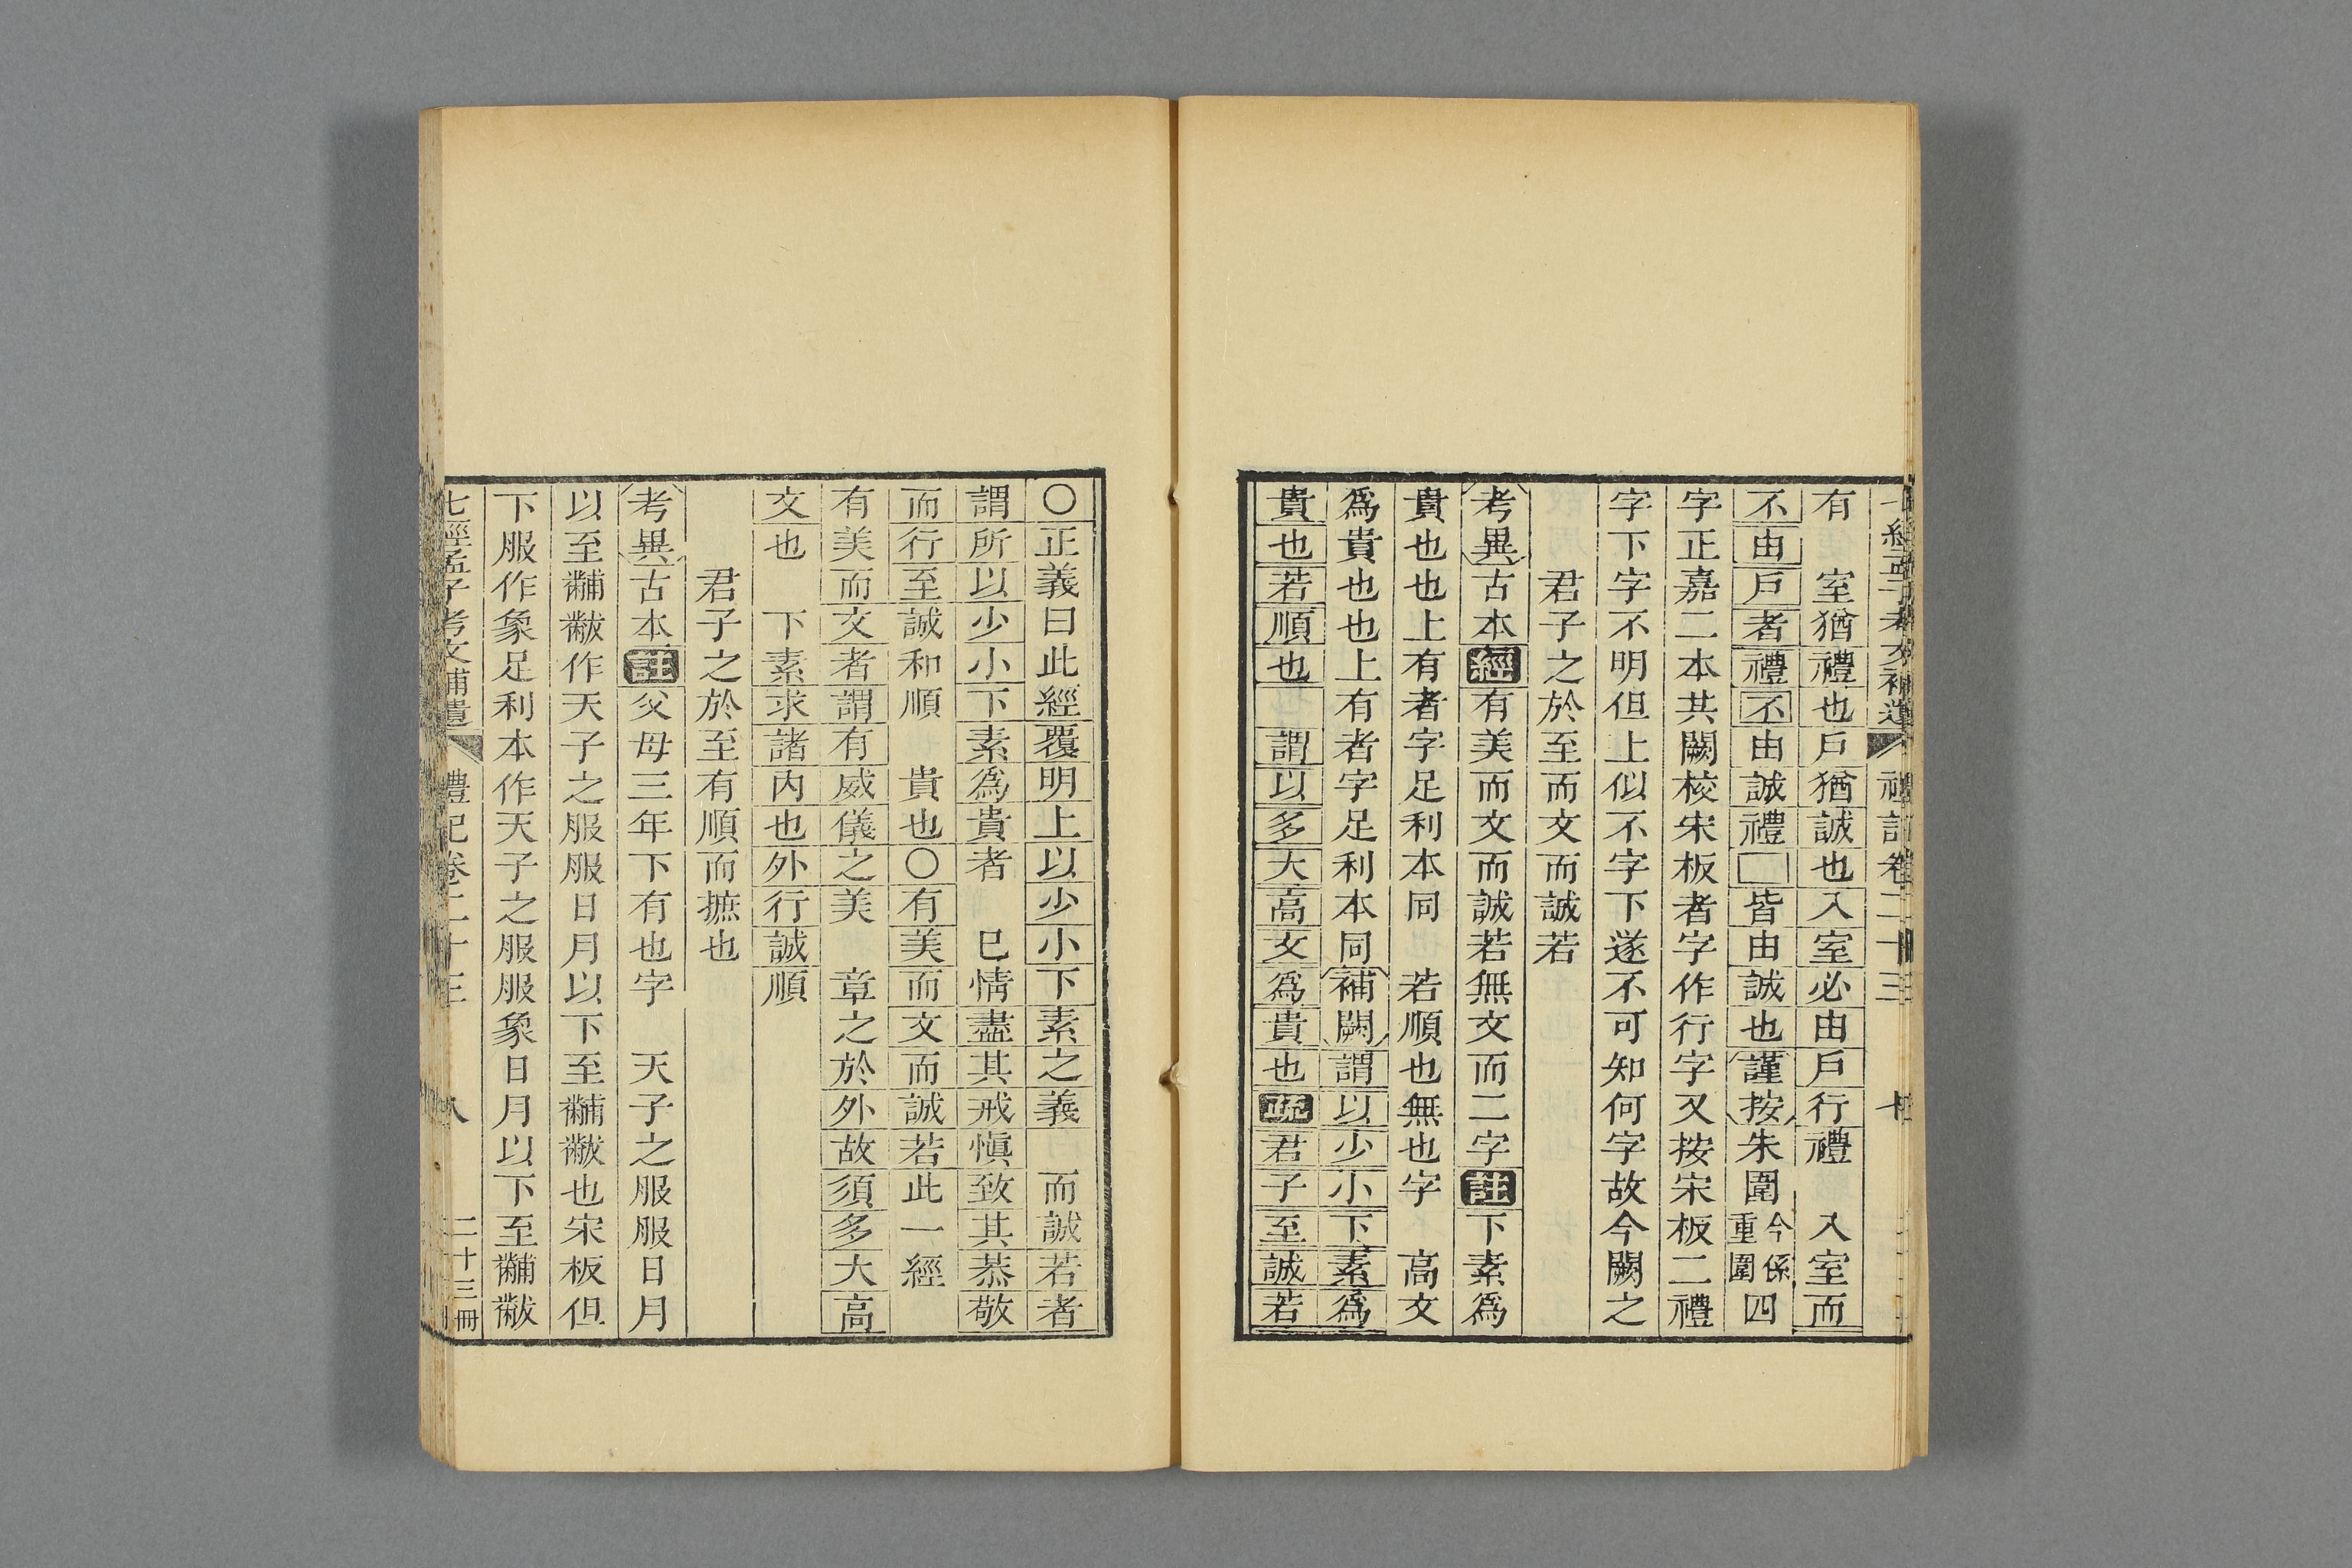 有 室猶禮也戶猶誠也入室必由戶行禮 入室而
不由戶者禮不由誠禮□皆由誠也謹按朱圍今係重圍四
字正嘉二本其闕校宋板者字作行字又按宋板二禮
字下字不明但上似不字下遂不可知何字故今闕之
君子之於至而文而誠若
考異古本經有美而文而誠若無文而二字註下素為
貴也也上有者字足利本同 若順也無也字 高文
為貴也也上有者字足利本同補闕謂以少小下素為
貴也若順也 謂以多大高文為貴也疏君子至誠若
○正義曰此經覆明上以少小下素之義 而誠若者
謂所以少小下素為貴者 巳情盡其戒慎致其恭敬
而行至誠和順 貴也○有美而文而誠若此一經
有美而文者謂有威儀之美 章之於外故須多大高
文也 下素求諸內也外行誠順
君子之於至有順而摭也
考異古本註父母三年下有也字 天子之服服日月
以至黼黻作天子之服服日月以下至黼黻也宋板但
下服作象足利本作天子之服服象日月以下至黼黻
七經孟子考文補遺 禮記卷二十三 八 二十三冊